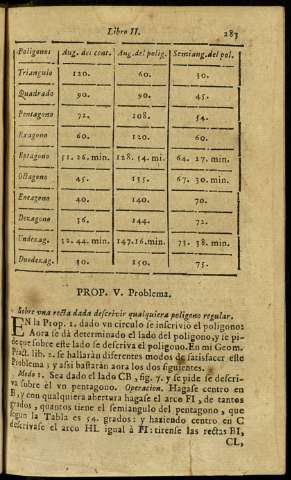 Libro II. 283
Poligonos Ang. del cent. Ang. del polig. Semiang. del pol.
Triangulo 120. 60. 30.
Quadrado 90. 90. 45.
Pentagono 72. 208. 54.
Exagono 60. 120. 60.
Eptagono 51. 26. min. 128. 34. mi. 64. 17. min.
Octagono 45. 135. 67. 30. min.
Eneagono 40. 140. 70.
Dexagono 36. 144. 72.
Undexag. 32. 44. min. 147. 16. min. 73. 38. min.
Duodexag. 30. 150. 75.
PROP. V. Problema.
Sobre vna recta dada descrivir qualquiera poligono regular.
EN la Prop. 1. dado vn circulo se inscriviò el poligono:
Aora se dà determinado el lado del poligono, y se pi-
de que sobre este lado se descriva el poligono. En mi Geom.
Pract. lib. 2. se hallaràn diferentes modos de satisfacer este
Problema; y assi bastaràn aora los dos siguientes.
Modo 1. Sea dado el lado CB, fig. 7. y se pide se descri-
va sobre èl vn pentagono. Operacion. Hagase centro en
B, y con qualquiera abertura hagase el arco FI, de tantos
grados, quantos tiene el semiangulo del pentagono, que
segun la Tabla es 54. grados: y haziendo centro en C
descrivase el arco HL igual à FI: tirense las rectas BI,
CL,